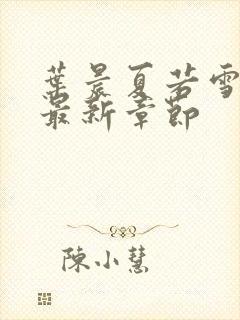 葉晨夏若雪
最新章節
陳小慧